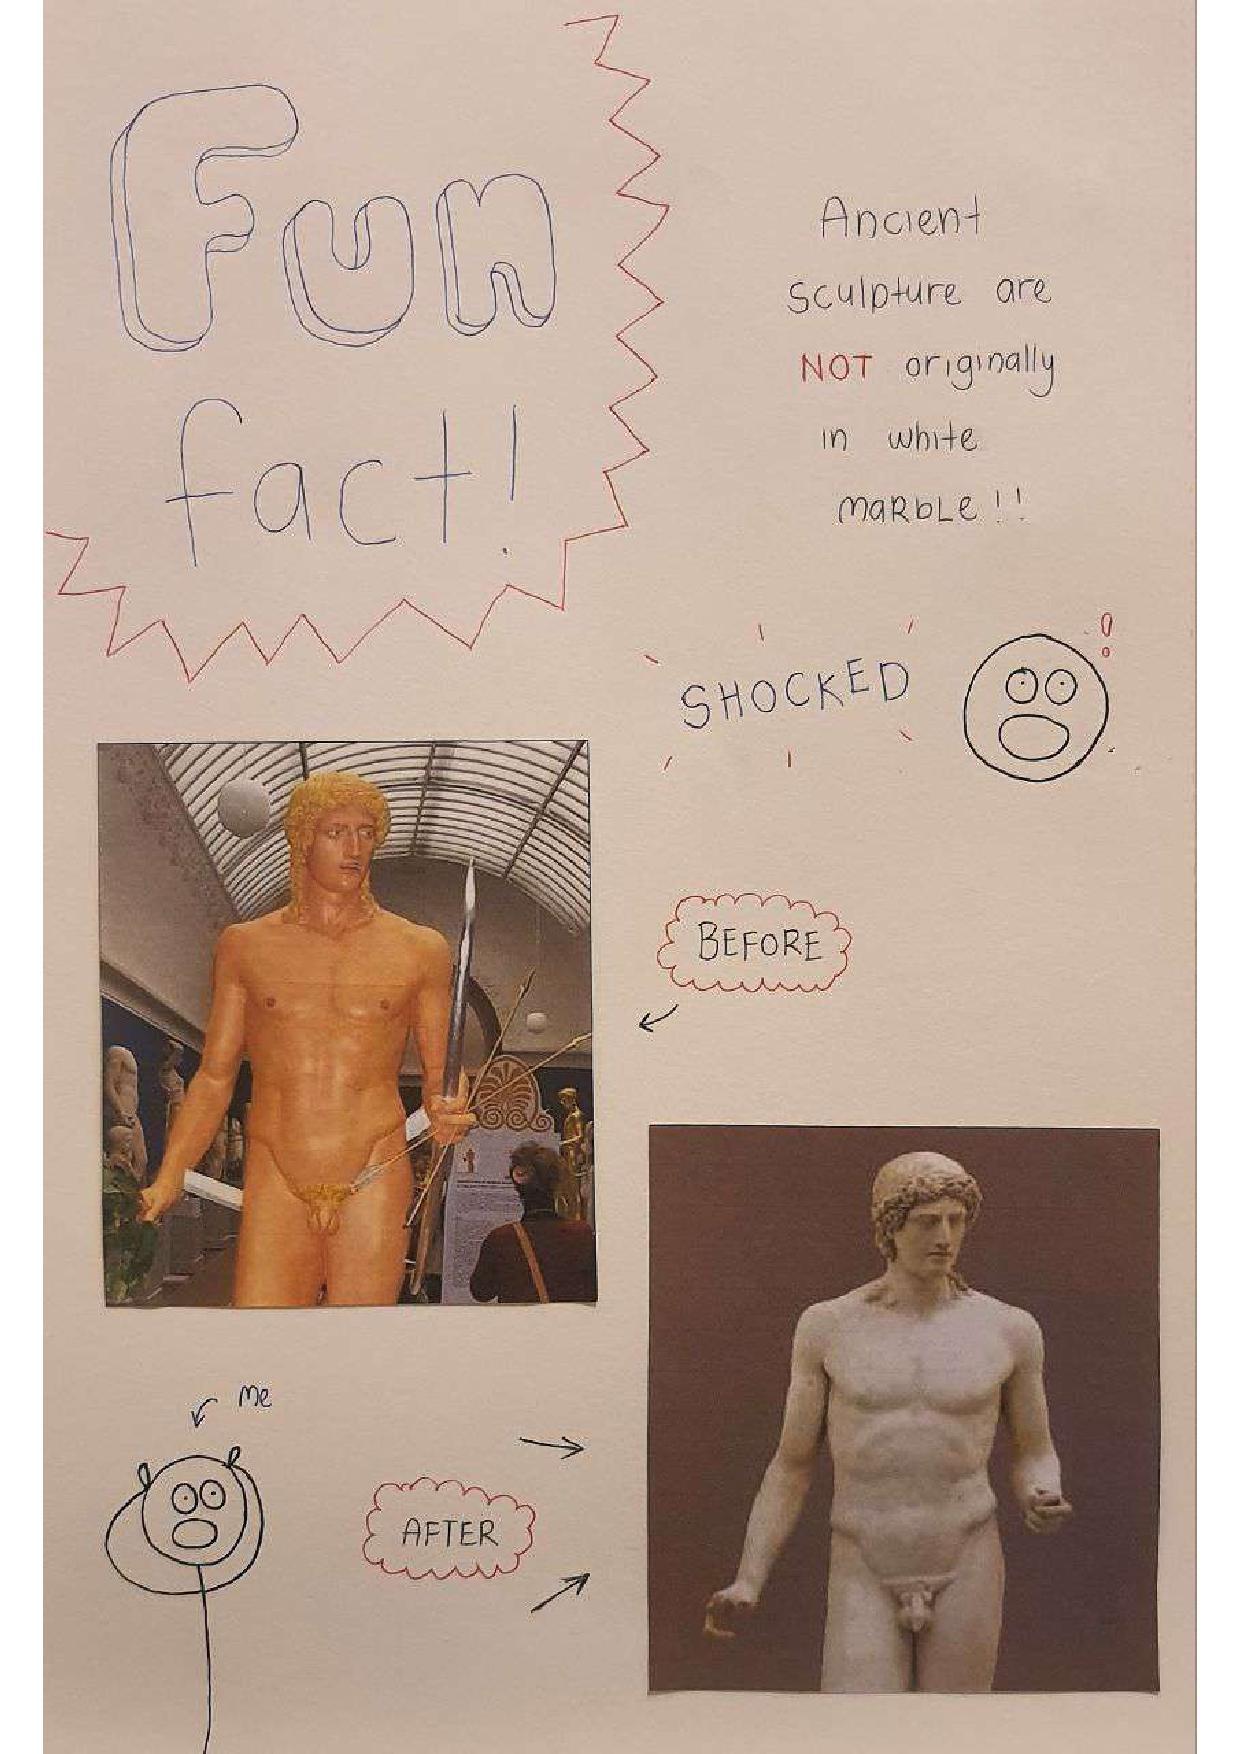 Fun
fact!
Ancient
sculpture are
NOT originally
in white
maRbLe!!
SHOCKED !
BEFORE
Me
AFTER